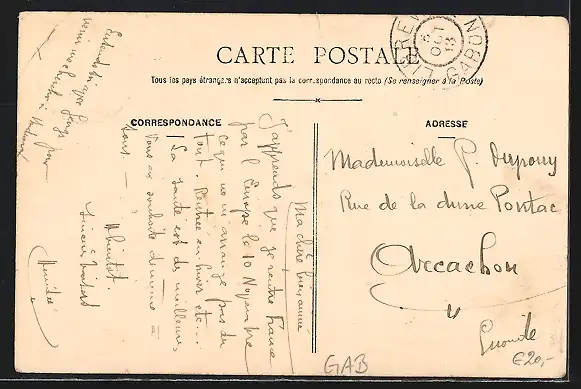 CARTE POSTALE
Tous les pays étrangers n'acceptent pas la correspondance au recto (Se renseigner à la Poste)
CORRESPONDANCE
ADRESSE
LIBREVILLE
GABON
OCT
13
Ma chère
J'apprends que je rentre France
par l'Europe le 10 Novembre
ce qui ne m'arrange pas du
tout. Rentrée en hiver etc...
La santé est des meilleures
Vous en souhaite de même à
tous —
A bientôt.
Mademoiselle P. Dupouy
Rue de la dune Pontac
Arcachon
Gironde
GAB
€20,-